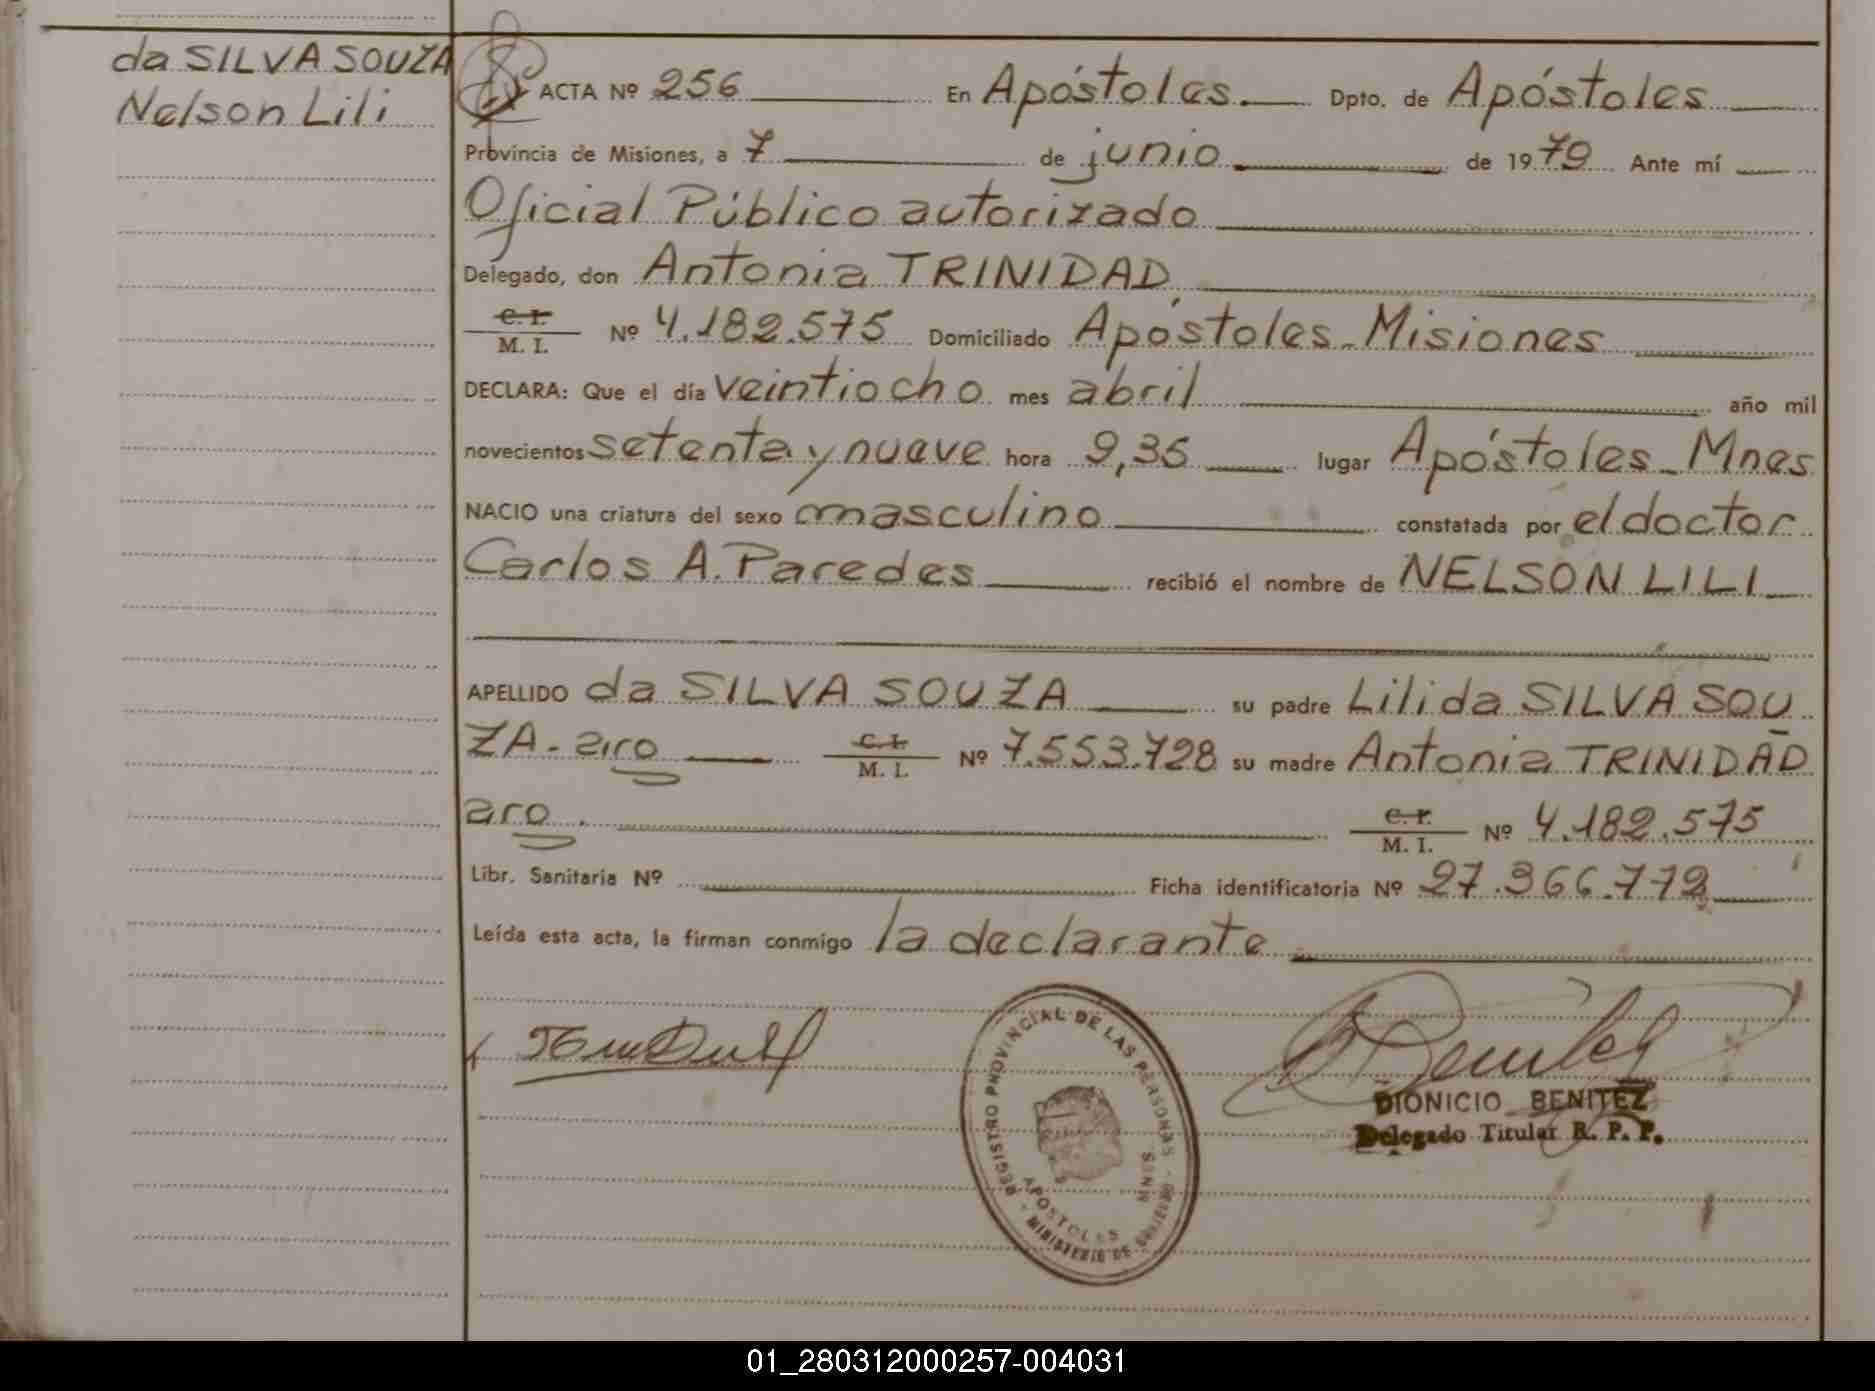 da SILVA SOUZA
Nelson Lili
ACTA Nº 256 En Apóstoles. Dpto. de Apóstoles
Provincia de Misiones, a 7 de junio de 1979 Ante mí
Oficial Público autorizado
Delegado, don Antonia TRINIDAD,
C. I.
M. I. Nº 4.182.575 Domiciliado Apóstoles - Misiones
DECLARA: Que el día veintiocho mes abril año mil
novecientos setenta y nueve hora 9,35 lugar Apóstoles - Mnes
NACIO una criatura del sexo masculino constatada por el doctor
Carlos A. Paredes recibió el nombre de NELSON LILI
APELLIDO da SILVA SOUZA su padre Lili da SILVA SOU
ZA - arco C. I.
M. I. Nº 7.553.728 su madre Antonia TRINIDAD
aro. C. I.
M. I. Nº 4.182.575
Libr. Sanitaria Nº Ficha identificatoria Nº 27.366.772
Leída esta acta, la firman conmigo la declarante
REGISTRO PROVINCIAL DE LAS PERSONAS - MINISTERIO DE GOBIERNO
APOSTOLES MNES
DIONICIO BENITEZ
Delegado Titular R. P. P.
01_280312000257-004031